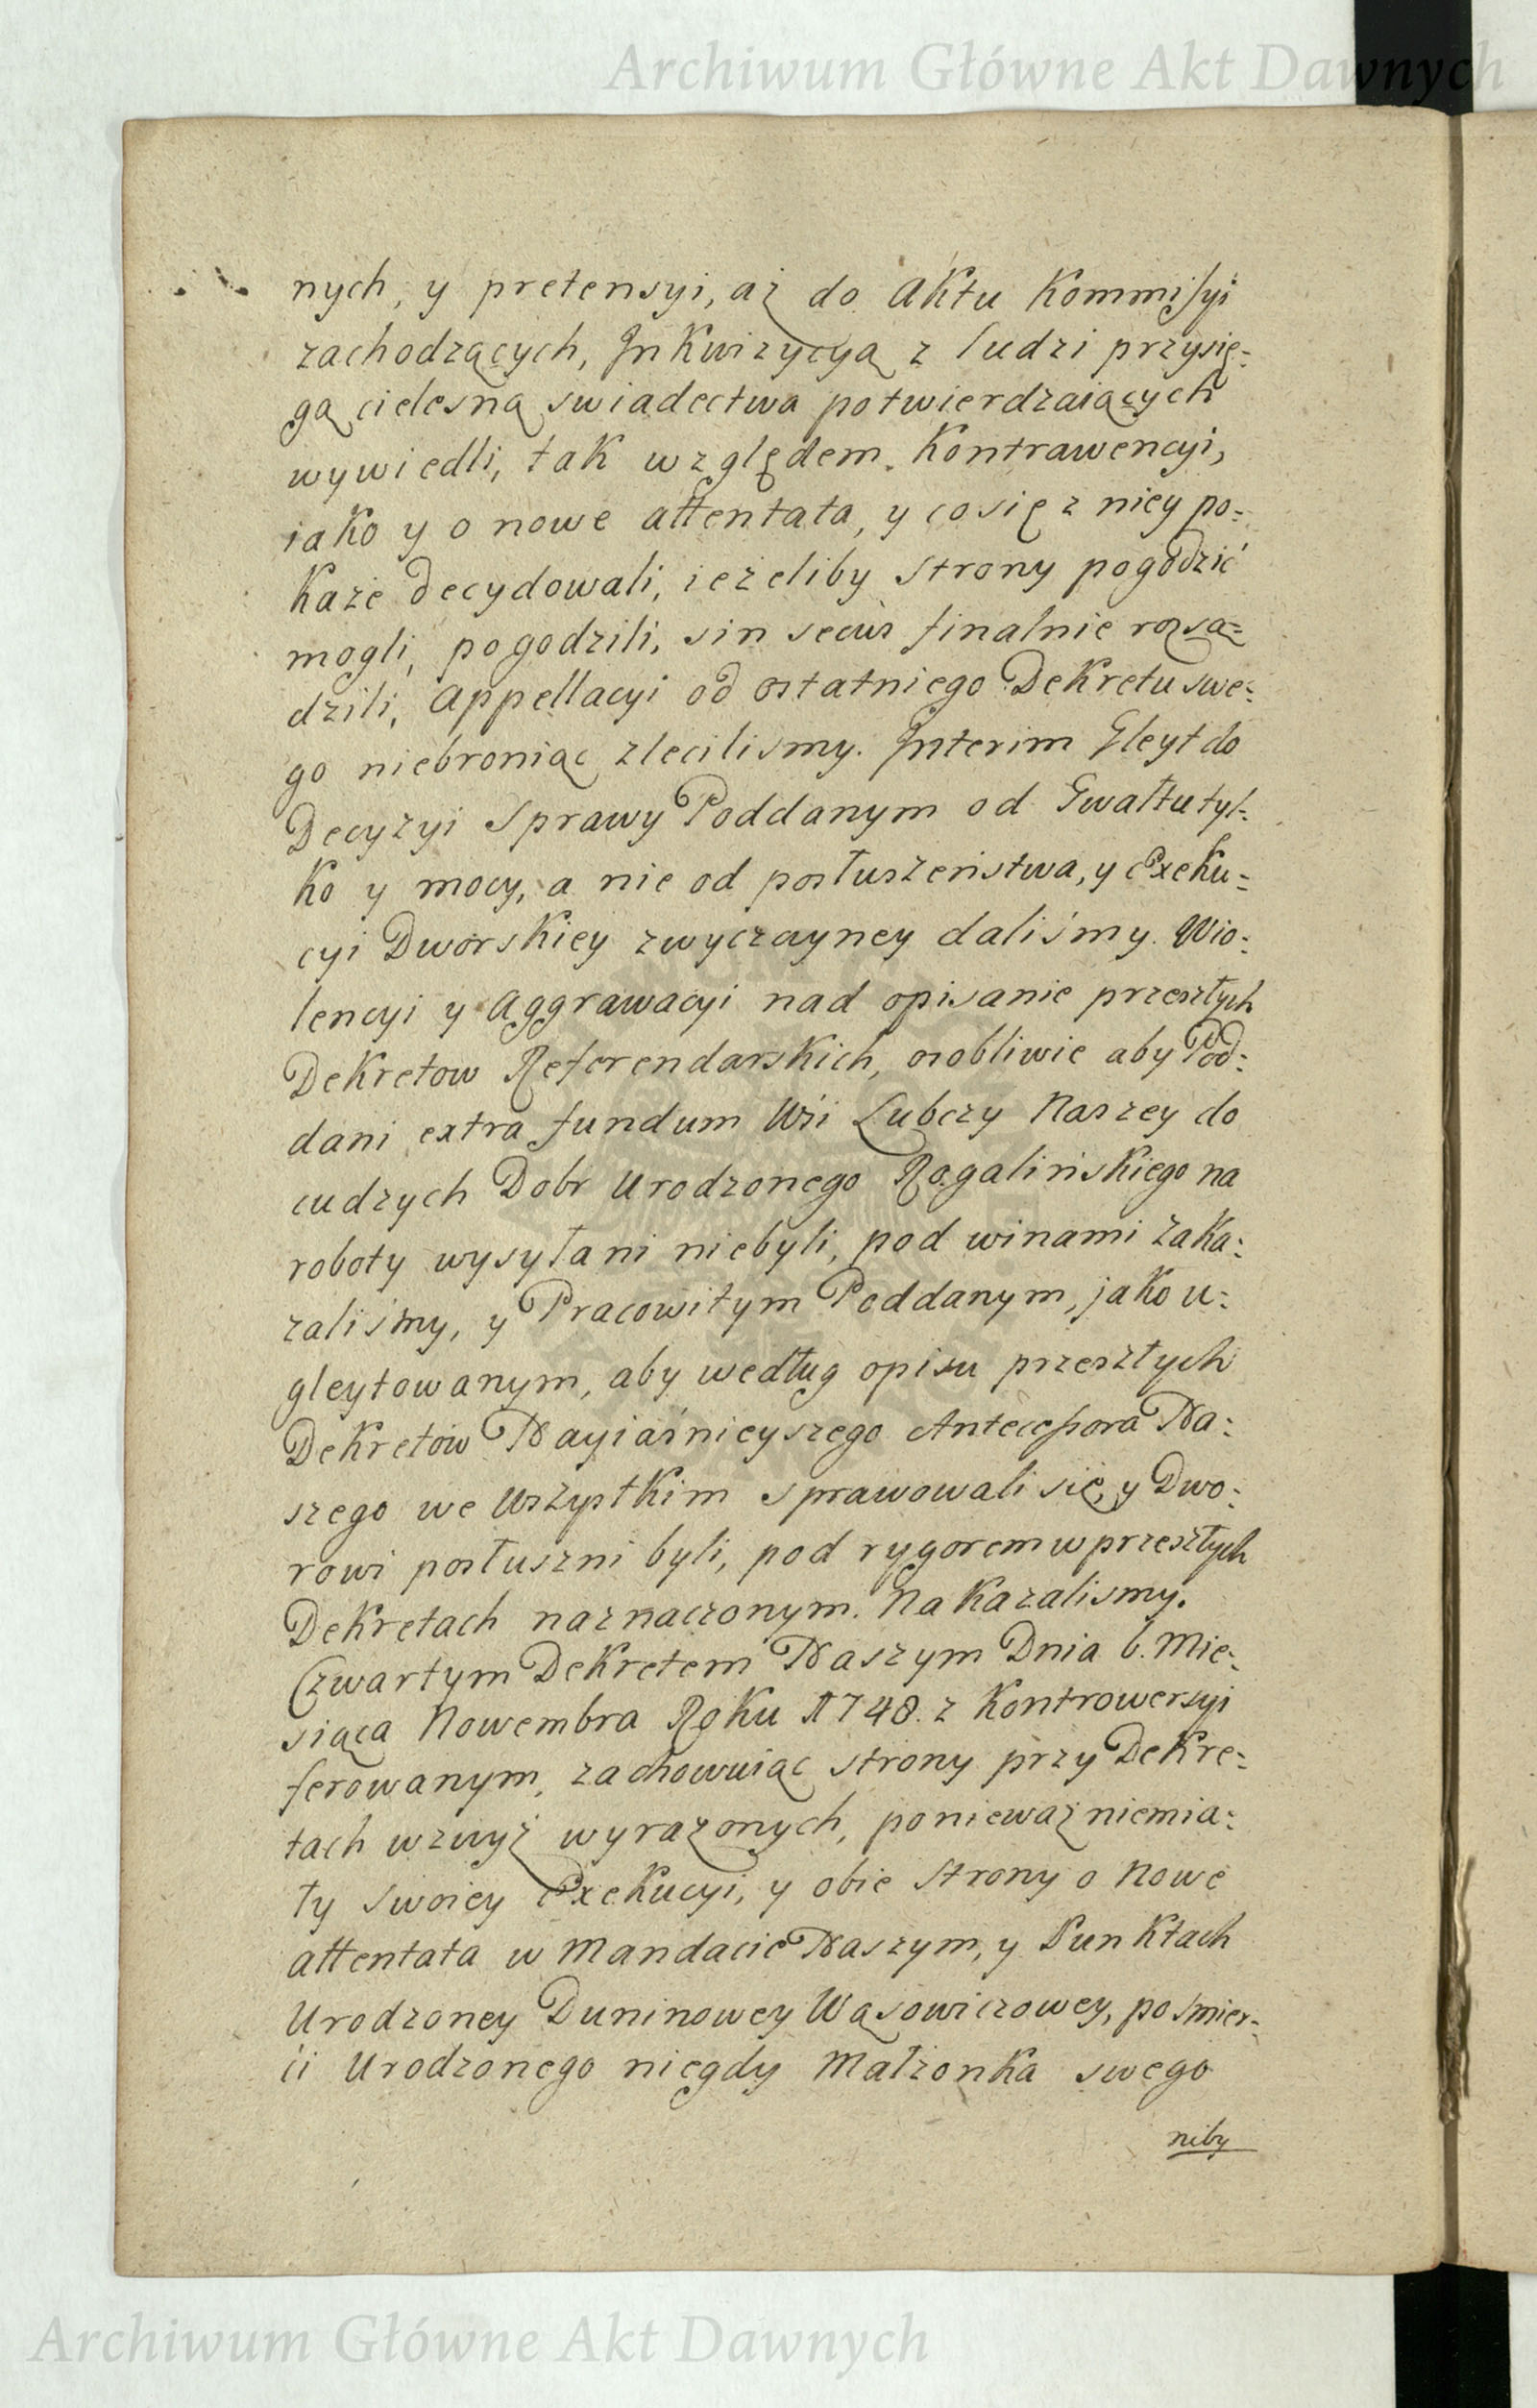 Archiwum Główne Akt Dawnych
nych, y pretensyi, aż do Aktu Kommissyi
zachodzących, Jnkwizycyą z ludzi przysię=
gą cielesną swiadectwa potwierdzaiących
wywiedli, tak względem Kontrawencyi,
iako y o nowe attentata, y co się z niey po=
każe decydowali, ieżeliby strony pogodzić
mogli, pogodzili, sin secus finalnie rozsą=
dzili, Appellacyi od ostatniego Dekretu swe=
go niebroniąc zlecilismy. Jnterim Gleyt do
Decyzyi Sprawy Poddanym od Gwałtu tyl=
ko y mocy, a nie od posłuszeństwa, y Exeku=
cyi Dworskiey zwyczayney daliśmy. Wio=
lencyi y Aggrawacyi nad opisanie przeszłych
Dekretow Referendarskich, osobliwie aby Pod=
dani extra fundum Wsi Lubczy Naszey do
cudzych Dobr Urodzonego Rogalińskiego na
roboty wysyłani niebyli, pod winami zaka=
zaliśmy, y Pracowitym Poddanym, jako u=
gleytowanym, aby według opisu przeszłych
Dekretów Nayiaśnieyszego Antecessora Na=
szego we wszystkim sprawowali się, y Dwo=
rowi posłuszni byli, pod rygorem w przeszłych
Dekretach naznaczonym. Nakazalismy.
Czwartym Dekretem Naszym Dnia 6. Mie=
siąca Nowembra Roku 1748. z Kontrowersyi
ferowanym, zachowuiąc strony przy Dekre=
tach wzwyż wyrażonych, ponieważ niemia=
ły swoiey Exekucyi, y obie Strony o Nowe
attentata w Mandacie Naszym, y Punktach
Urodzoney Duninowey Wąsowiczowey, po śmier=
ci Urodzonego niegdy Małżonka swego
niby
Archiwum Główne Akt Dawnych